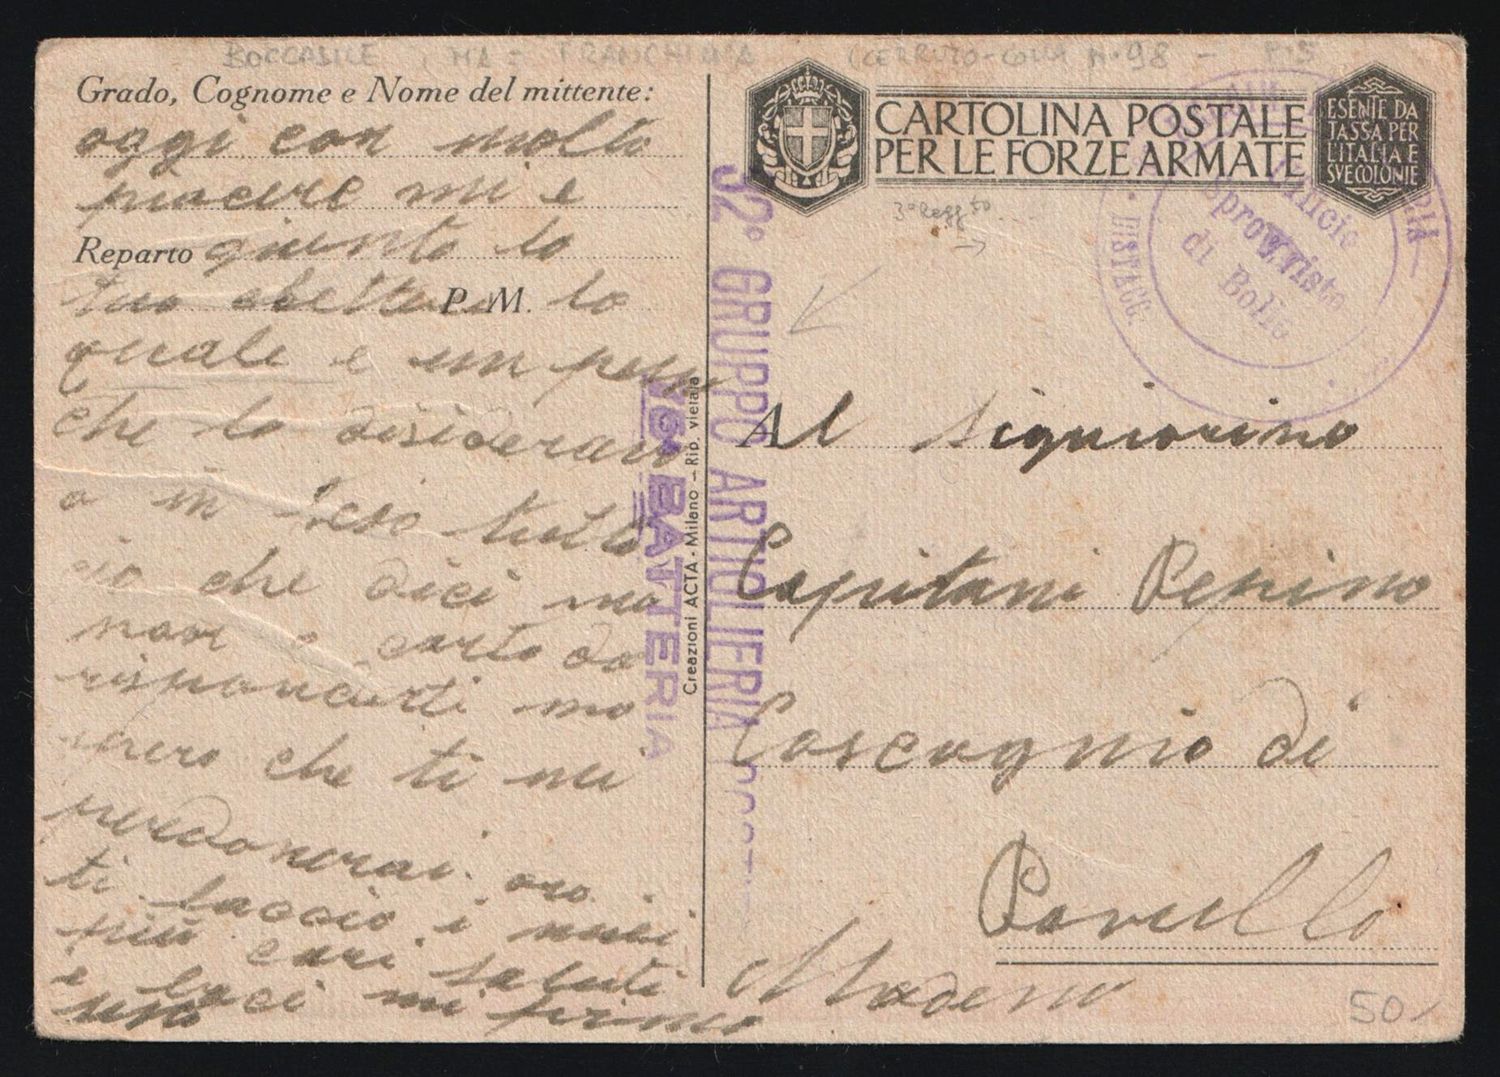 BOCCASILE
Grado, Cognome e Nome del mittente:
oggi con molto
piacere mi e
Reparto giunto lo
tuo P. M. lo
quale e un
che lo disideravo
o in teso tutto
cio che dici ma
non o carto da
risponderti ma
spero che ti mi
perdonerai. ora
ti laccio i miei
più cari saluti
e baci mi firmo
CARTOLINA POSTALE
PER LE FORZE ARMATE
ESENTE DA
TASSA PER
L'ITALIA E
SVE COLONIE
3° Regg^to
Ufficio
Sprovvisto
di Bollo
DISTACC.
32° GRUPPO ARTIGLIERIA
BATTERIA
Creazioni ACTA - Milano - Rip. vietata
Al Signiorino
Capitani Pepino
Coscognio di
Pavullo
Modena
50